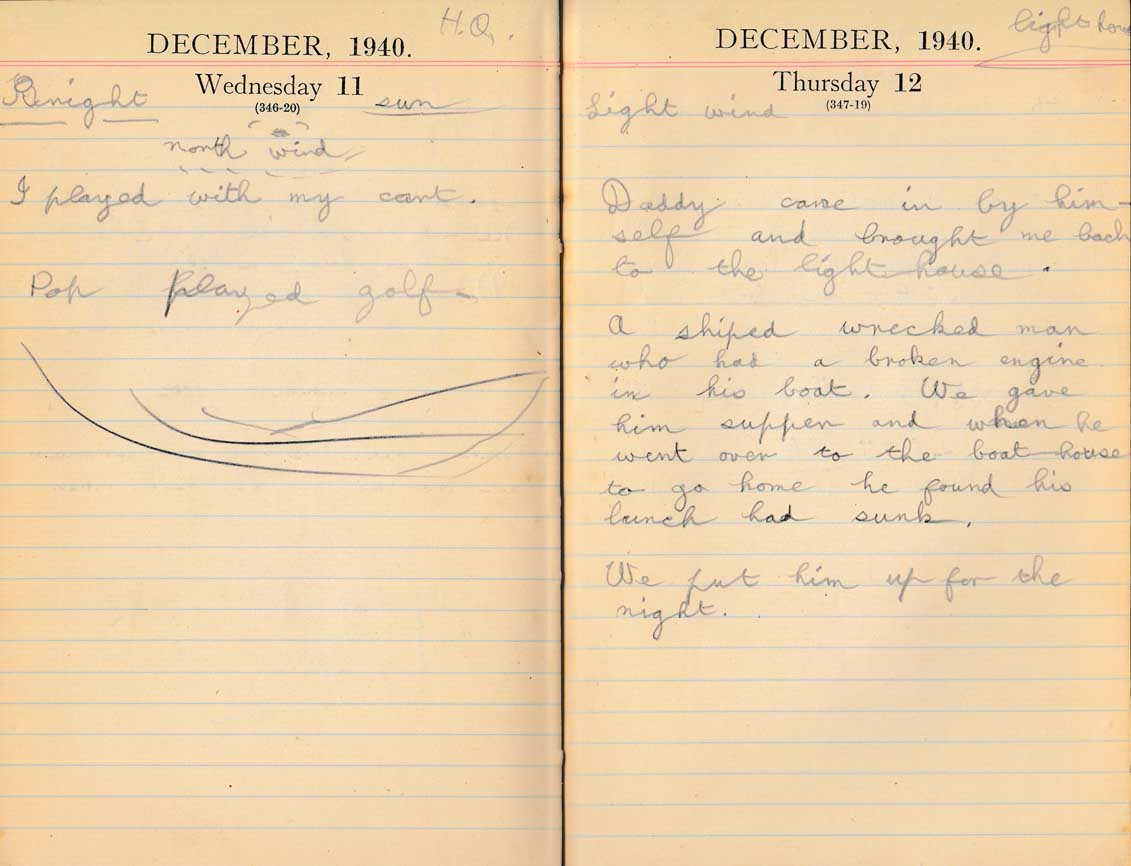 H.Q.
DECEMBER, 1940.
Wednesday 11
(346-20)
sun
north wind
I played with my cart.
Pop played golf
light hous
DECEMBER, 1940.
Thursday 12
(347-19)
Light wind
Daddy came in by him-
self and brought me back
to the light house.
A shiped wrecked man
who had a broken engine
in his boat. We gave
him supper and when he
went over to the boat house
to go home he found his
lunch had sunk.
We put him up for the
night.